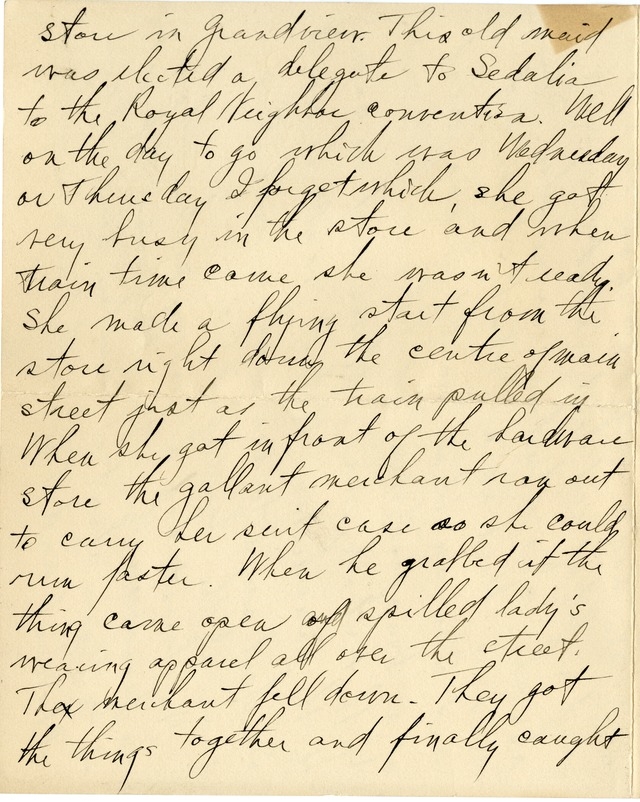 store in Grandview. This old maid
was elected a delegate to Sedalia
to the Royal Neighbor convention. Well
on the day to go which was Wednesday
or Thursday I forget which, she got
very busy in the store and when
train time came she wasn't ready.
She made a flying start from the
store right down the centre of main
street just as the train pulled in.
When she got in front of the hardware
store the gallant merchant ran out
to carry her suit case so she could
run faster. When he grabbed it the
thing came open and spilled lady's
wearing apparel all over the street.
The merchant fell down. They got
the things together and finally caught